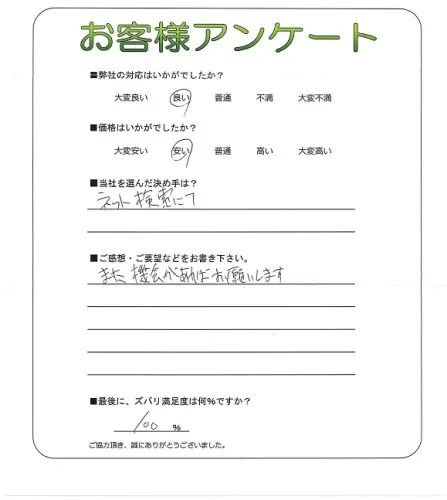 お客様アンケート
■弊社の対応はいかがでしたか？
大変良い 良い 普通 不満 大変不満
■価格はいかがでしたか？
大変安い 安い 普通 高い 大変高い
■当社を選んだ決め手は？
ネット検索にて
■ご感想・ご要望などをお書き下さい。
また機会があればお願いします
■最後に、ズバリ満足度は何%ですか？
100 %
ご協力頂き、誠にありがとうございました。